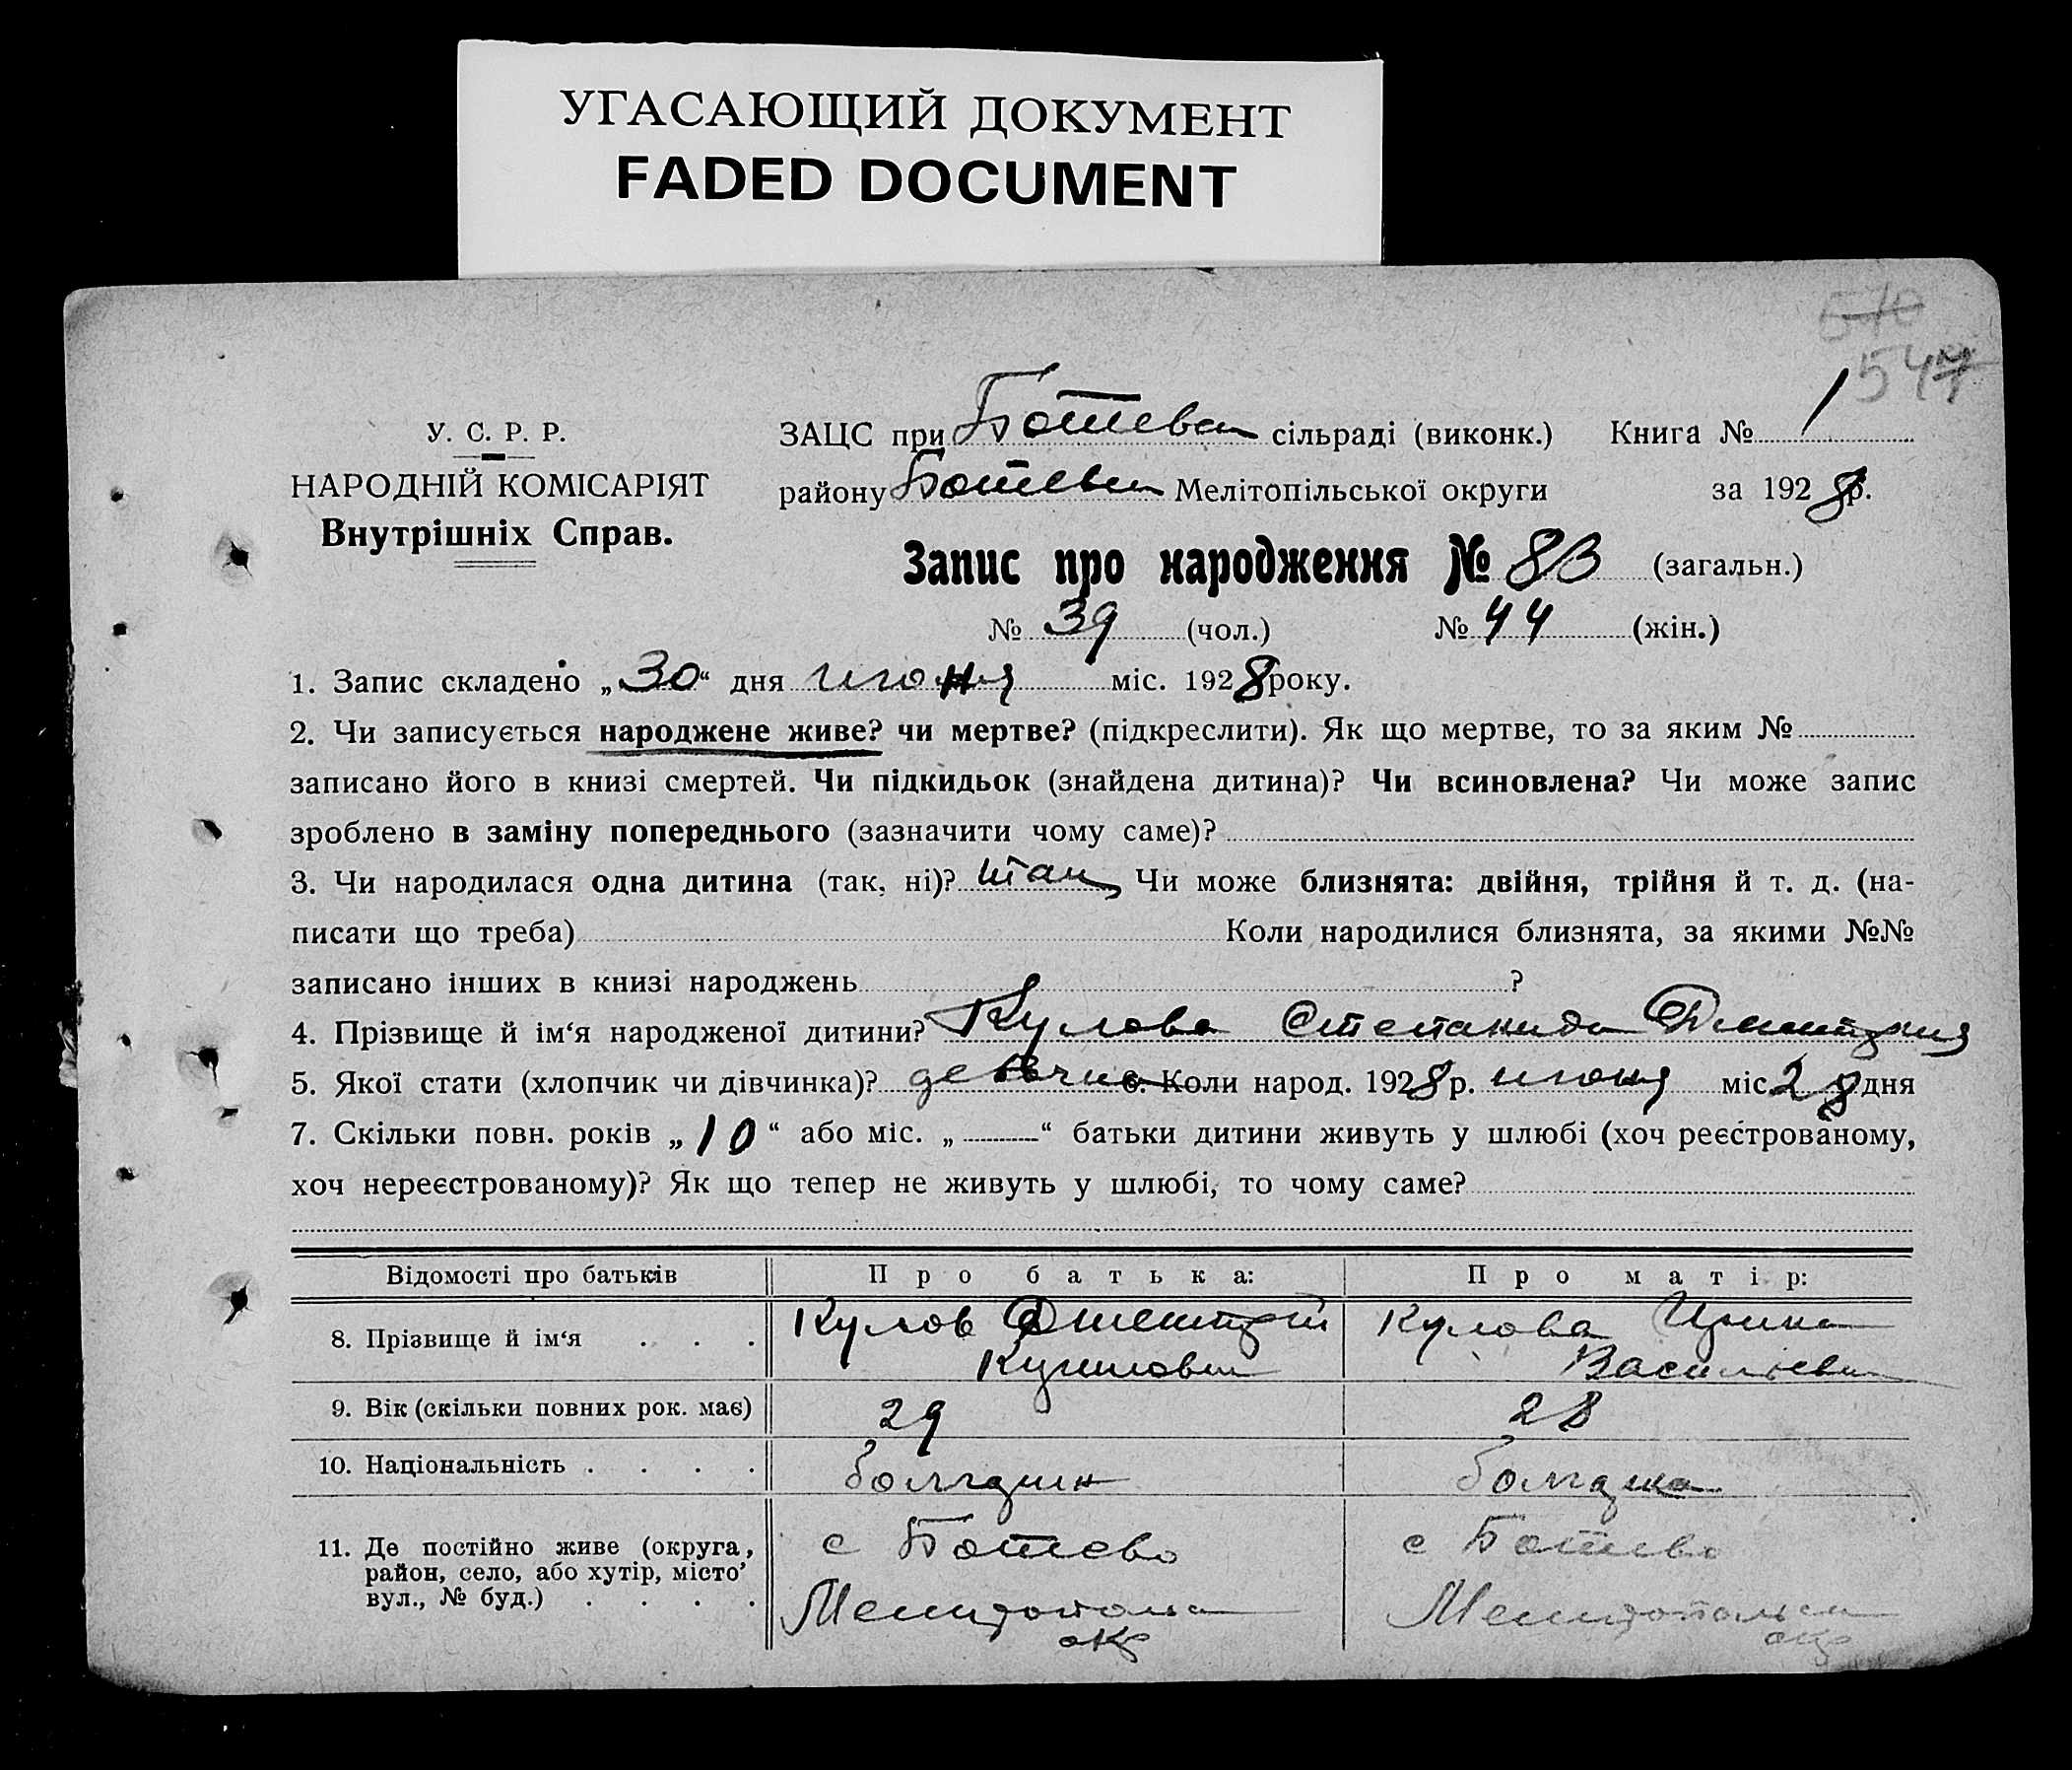 УГАСАЮЩИЙ ДОКУМЕНТ
FADED DOCUMENT
570
547
У. С. Р. Р.
НАРОДНІЙ КОМІСАРІЯТ
Внутрішніх Справ.
ЗАЦС при Ботевск сільраді (виконк.) Книга № 1
району Ботевск Мелітопільської округи за 1928 р.
Запис про народження № 83 (загальн.)
№ 39 (чол.) № 44 (жін.)
1. Запис складено „30“ дня июня міс. 1928 року.
2. Чи записується народжене живе? чи мертве? (підкреслити). Як що мертве, то за яким №
записано його в книзі смертей. Чи підкидьок (знайдена дитина)? Чи всиновлена? Чи може запис
зроблено в заміну попереднього (зазначити чому саме)?
3. Чи народилася одна дитина (так, ні)? Чи може близнята: двійня, трійня й т. д. (на-
писати що треба) Коли народилися близнята, за якими №№
записано інших в книзі народжень ?
4. Прізвище й ім‘я народженої дитини? Кулова Степанида
5. Якої стати (хлопчик чи дівчинка)? 6. Коли народ. 1928 р. июня міс. 28 дня
7. Скільки повн. років „10“ або міс. „ “ батьки дитини живуть у шлюбі (хоч реєстрованому,
хоч нереєстрованому)? Як що тепер не живуть у шлюбі, то чому саме?
Відомості про батьків Про батька: Про матір:
8. Прізвище й ім‘я . . . Кулов Дмитрий Кулова Ирина
Васильевн
9. Вік (скільки повних рок. має) 29 28
10. Національність . . . . болгарин болгарка
11. Де постійно живе (округа, с Ботево с Ботево
район, село, або хутір, місто’
вул., № буд.) . . . . Мелитопольск Мелитопольск
окр окр